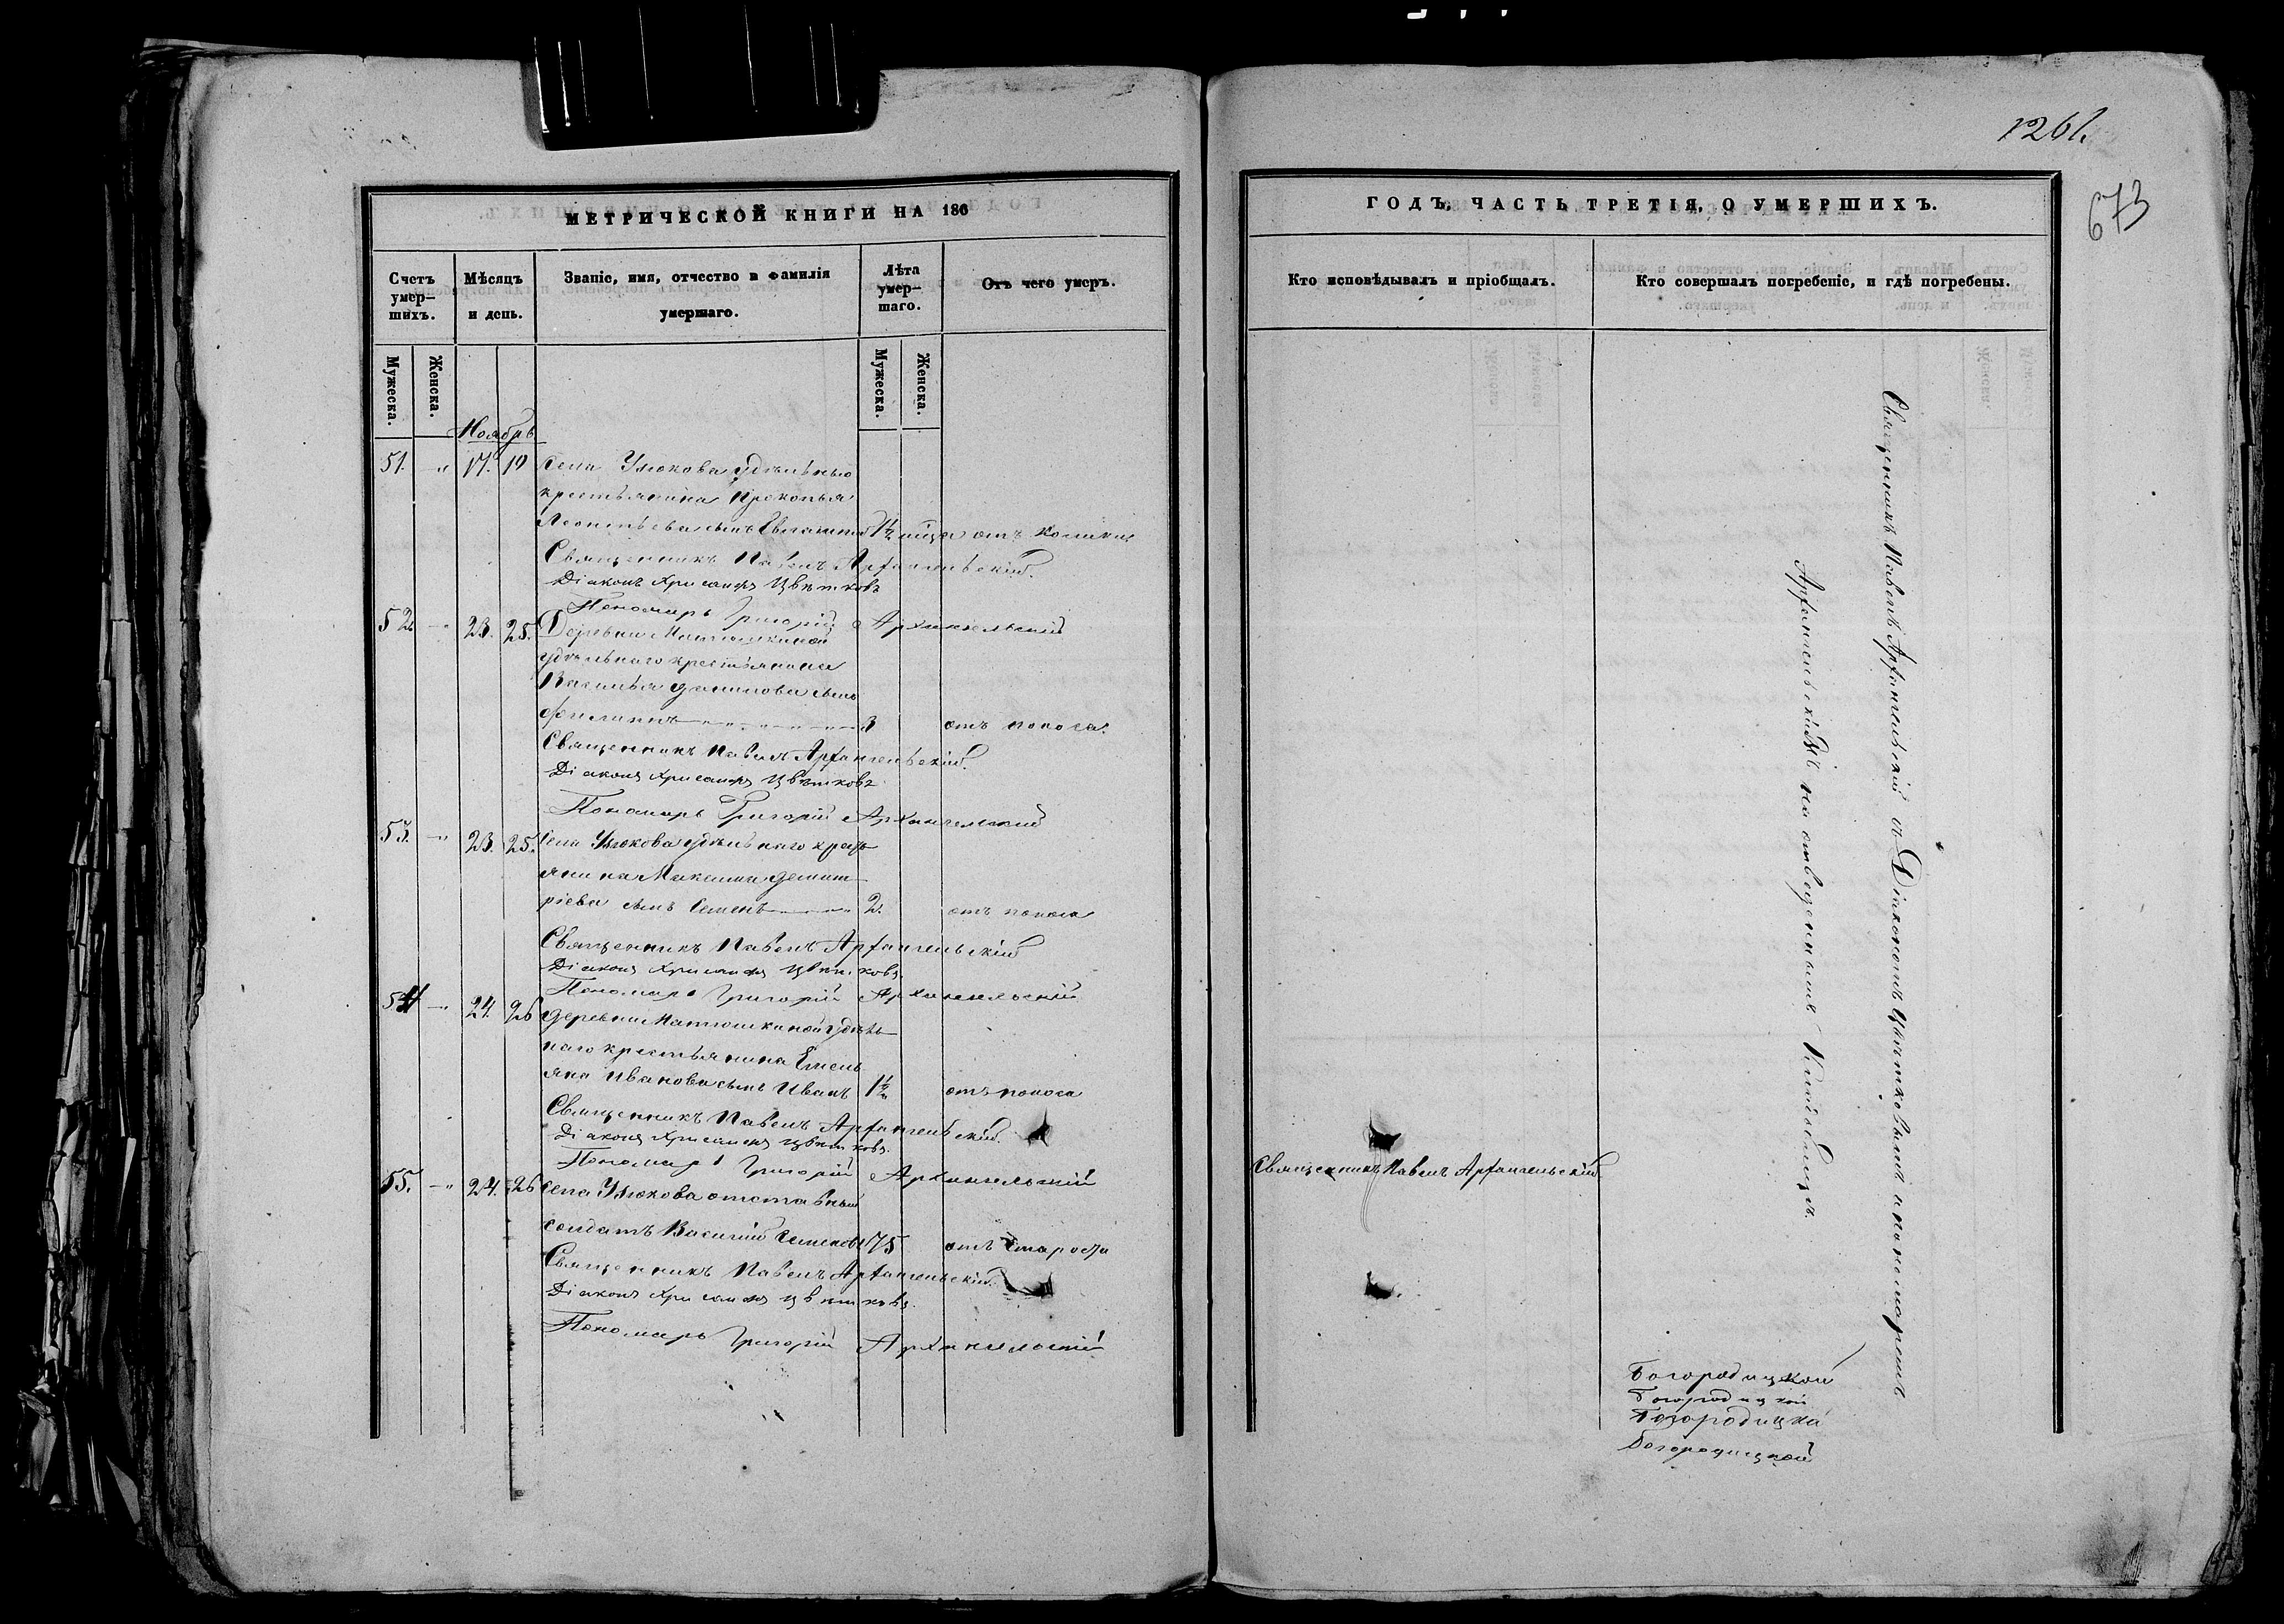 1261.
673
МЕТРИЧЕСКОЙ КНИГИ НА 186
Счетъ умер- шихъ.
Мѣсяцъ и день.
Званіе, имя, отчество и фамилія умершаго.
Лѣта умер- шаго.
Отъ чего умеръ.
Мужеска.
Женска.
Мужеска.
Женска.
Ноябрь
51. " 17. 19 Села Улюкова удѣльнаго
крестьянина Прокопья
Леонтьева сынъ отъ колики
Священникъ Павелъ Архангельскій.
Діаконъ Хрисанфъ Цвѣтковъ
Пономарь Григорій Архангельскій
52. " 23. 25. Деревни Матюшкиной
удѣльнаго крестьянина
Василья Данилова сынъ
Филиппъ 3 отъ поноса.
Священникъ Павелъ Архангельскій.
Діаконъ Хрисанфъ Цвѣтковъ
Пономарь Григорій Архангельскій
53. " 23. 25. Села Улюкова удѣльнаго крестъ
янина Максима Димит
ріева сынъ Семенъ 2. отъ поноса
Священникъ Павелъ Архангельскій
Діаконъ Хрисанфъ Цвѣтковъ
Пономарь Григорій Архангельскій
54 " 24. 26 Деревни Матюшкиной удѣль
наго крестьянина Емель
яна Иванова сынъ Иванъ 1½ отъ поноса
Священникъ Павелъ Архангельскій.
Діаконъ Хрисанфъ Цвѣтковъ.
Пономарь Григорій Архангельскій
55. " 24. 26 Села Улюкова отставный
солдатъ Василій Семеновъ 75 отъ старости
Священникъ Павелъ Архангельскій.
Діаконъ Хрисанфъ Цвѣтковъ.
Пономарь Григорій Архангельскій
ГОДЪ, ЧАСТЬ ТРЕТІЯ, О УМЕРШИХЪ.
Кто исповѣдывалъ и пріобщалъ.
Кто совершалъ погребеніе, и гдѣ погребены.
Священникъ Павелъ Архангельскій
Священникъ Павелъ Архангельскій съ Діакономъ Цвѣтковымъ и пономаремъ
Архангельскимъ на отведенномъ кладбищѣ.
Богородицкой
Богородицкой
Богородицкой
Богородицкой